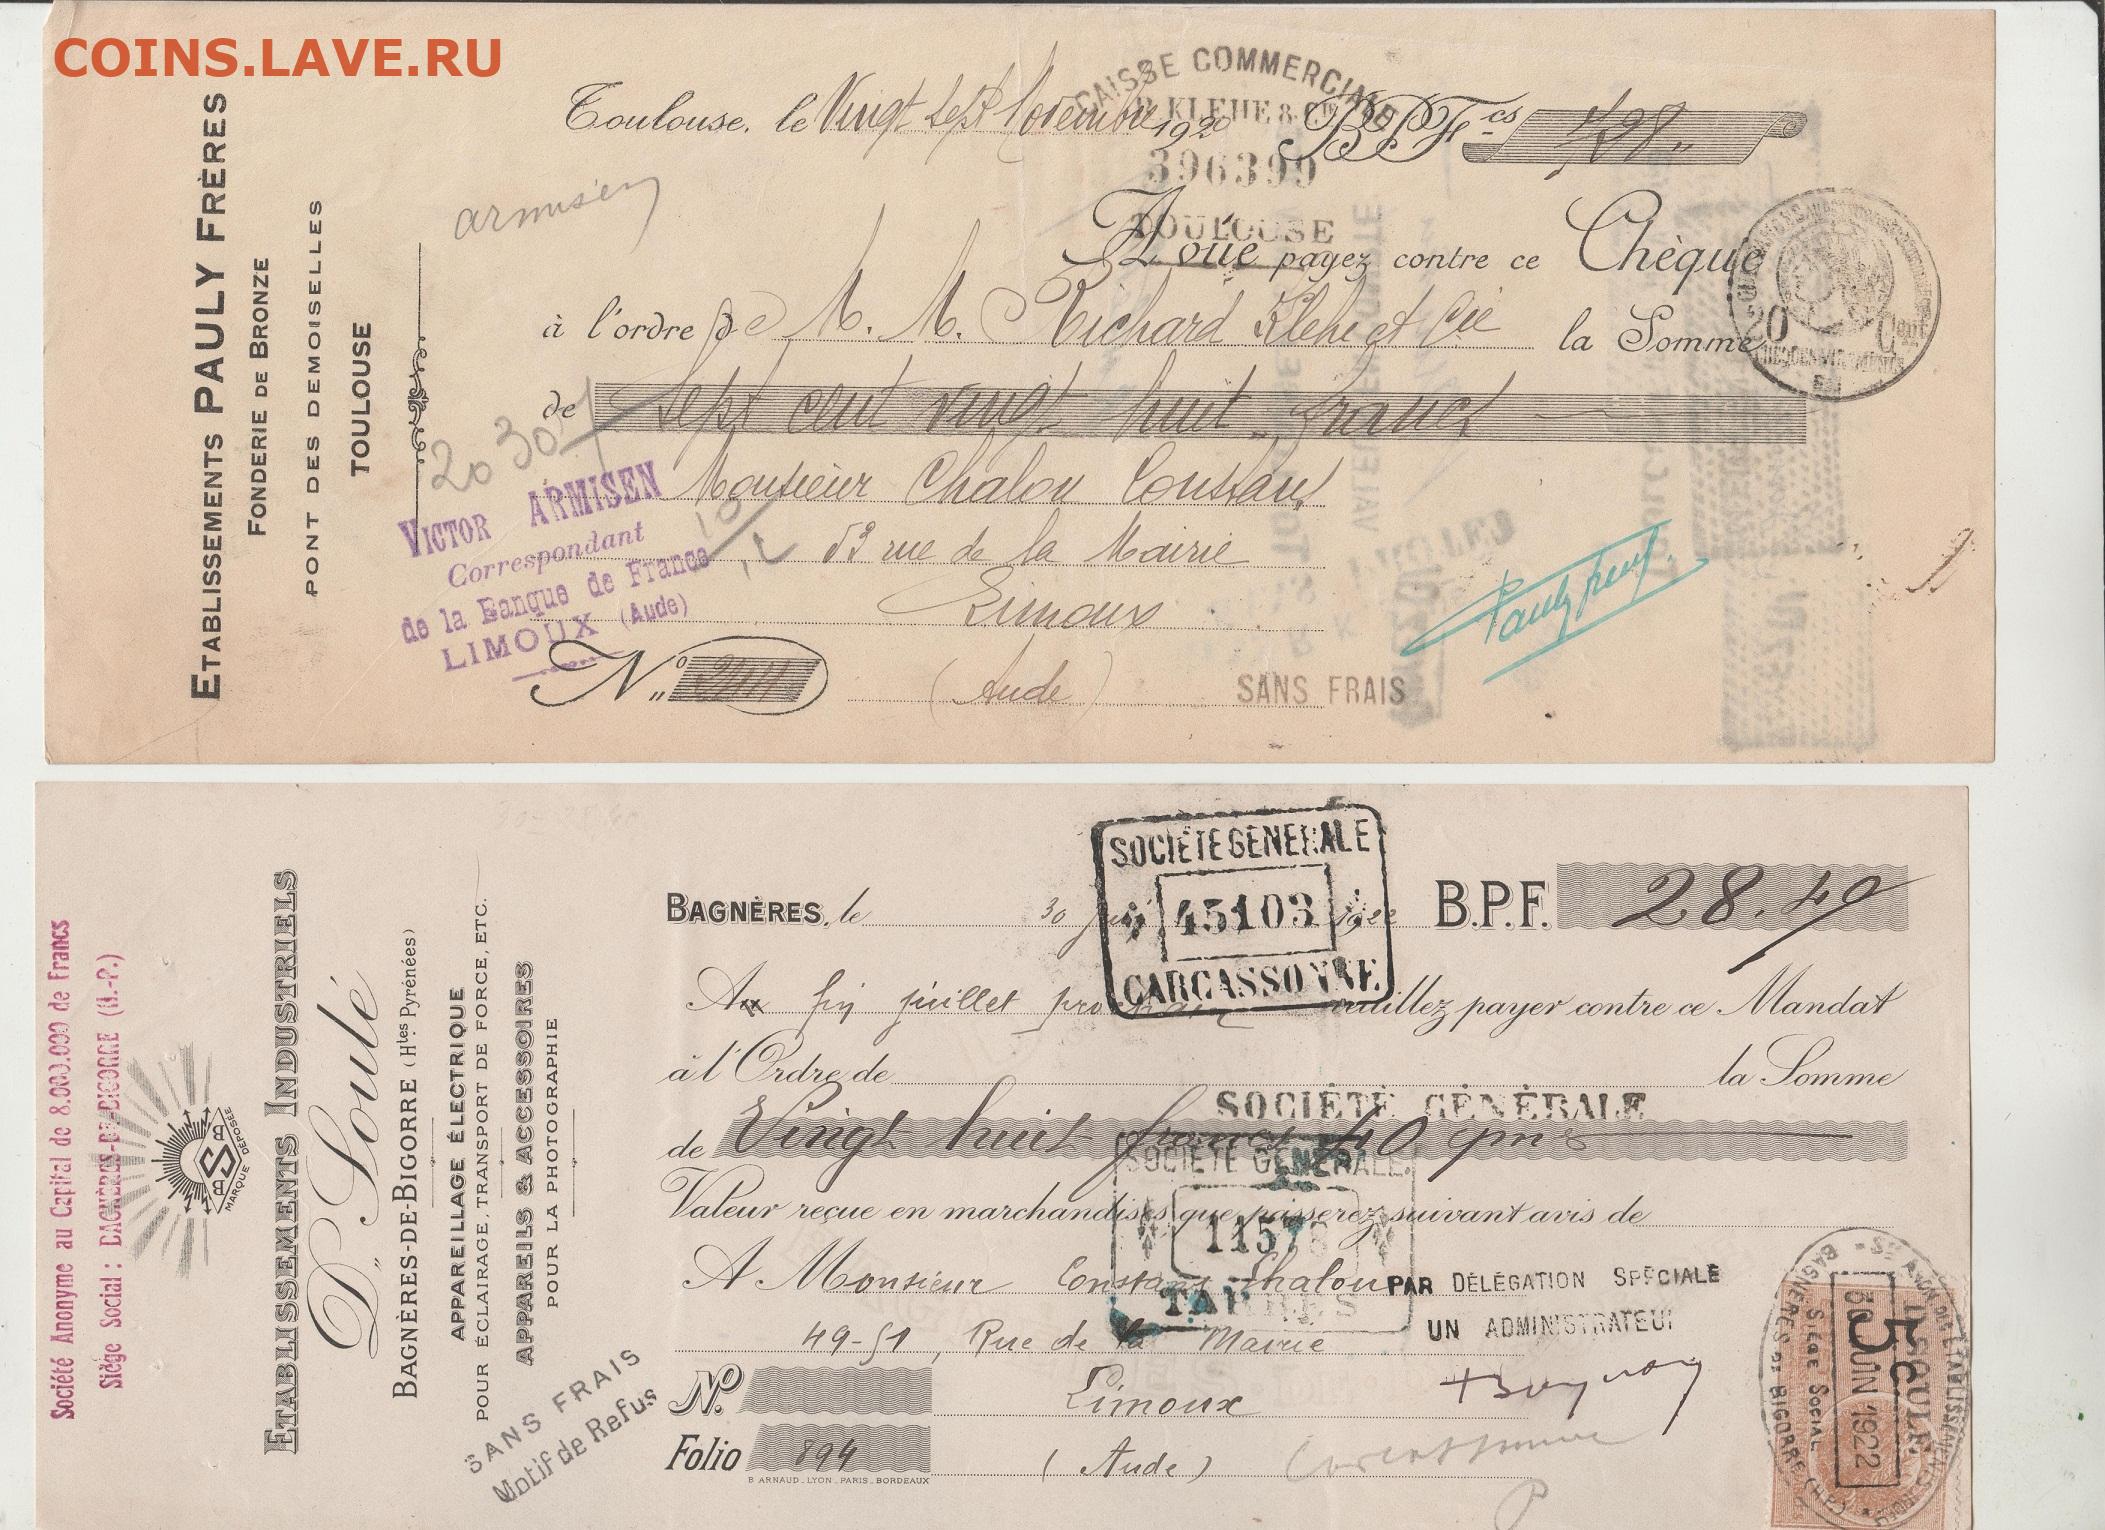 COINS.LAVE.RU
ETABLISSEMENTS PAULY FRÈRES
FONDERIE DE BRONZE
PONT DES DEMOISELLES
TOULOUSE
CAISSE COMMERCIALE
R. KLEHE & Cie
396399
TOULOUSE
Toulouse, le Vingt sept Novembre 1920 B.P.F.cs 728 "
armisen
A vue payez contre ce Chèque
à l'ordre de M. M. Richard Klehe et Cie la Somme
de Sept cent vingt huit francs
20 Cent
20 30
Monsieur Chalou Constant
53 rue de la Mairie
Limoux
(Aude)
VICTOR ARMISEN
Correspondant
de la Banque de France
LIMOUX (Aude)
No
SANS FRAIS
Pauly
Société Anonyme au Capital de 8.000.000 de Francs
Siège Social : BAGNÈRES-DE-BIGORRE (H.-P.)
MARQUE DÉPOSÉE
ETABLISSEMENTS INDUSTRIELS
D. Soulé
BAGNÈRES-DE-BIGORRE (Htes Pyrénées)
APPAREILLAGE ÉLECTRIQUE
POUR ÉCLAIRAGE, TRANSPORT DE FORCE, ETC.
APPAREILS & ACCESSOIRES
POUR LA PHOTOGRAPHIE
SANS FRAIS
Motif de Refus
SOCIÉTÉ GÉNÉRALE
45103
CARCASSONNE
BAGNÈRES, le 30 juin 1922 B.P.F. 28.40
Au fin juillet prochain veuillez payer contre ce Mandat
à l'Ordre de la Somme
SOCIÉTÉ GÉNÉRALE
de Vingt huit francs 40 cms
SOCIÉTÉ GÉNÉRALE
Valeur reçue en marchandises que passerez suivant avis de
11578
TARBES
A Monsieur Constant Chalou
PAR DÉLÉGATION SPÉCIALE
UN ADMINISTRATEUR
49-51, Rue de la Mairie
No.
Limoux
Folio 894
(Aude)
Carcassonne
B ARNAUD _ LYON _ PARIS _ BORDEAUX
5c
30 JUIN 1922
D. SOULÉ
SIÈGE SOCIAL
BAGNÈRES DE BIGORRE (H.P.)